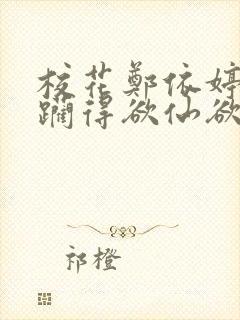 校花鄭依婷
躏得欲仙欲
祁橙